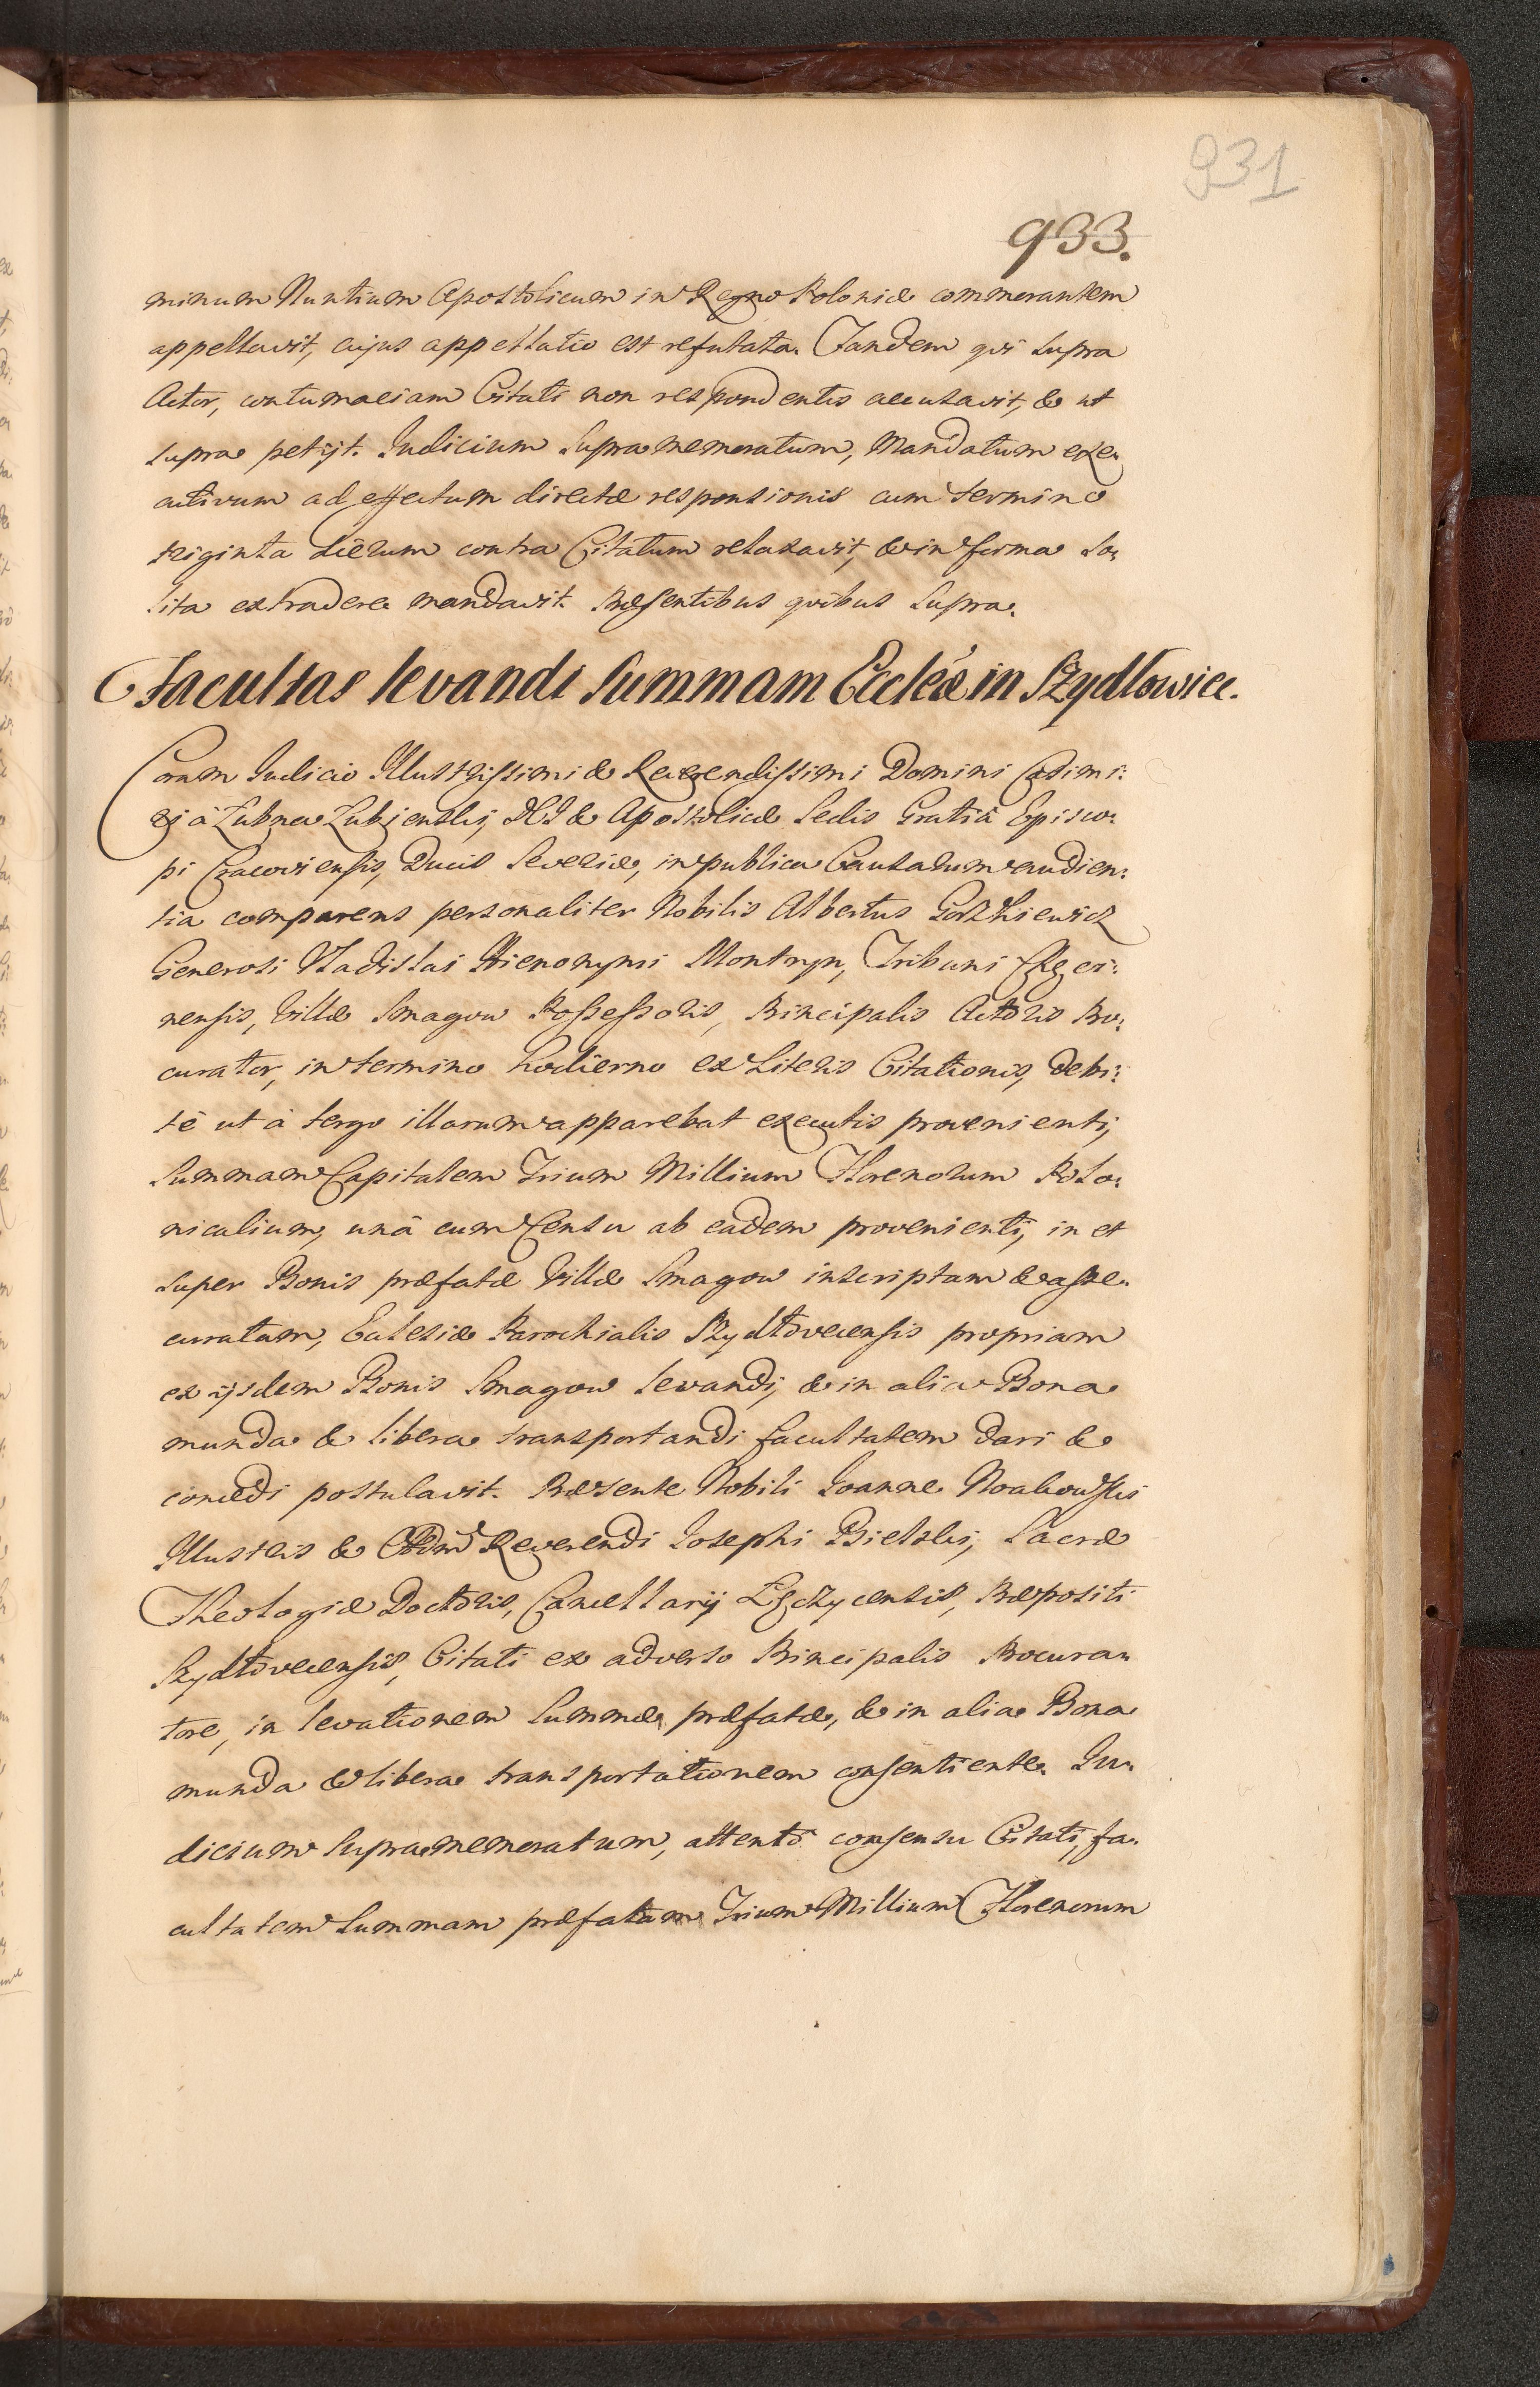 931
933.
minum Nuntium Apostolicum in Regno Poloniæ commorantem
appellavit, cujus appellatio est refutata. Tandem qui supra
Actor, contumaciam Citati non respondentis accusavit, & ut
supra petijt. Judicium supra memoratum, Mandatum exe„
cutivum ad effectum directæ responsionis cum termino
triginta dierum contra Citatum relaxavit, & in forma so„
lita extradere mandavit. Præsentibus quibus supra.
Facultas levandi Summam Ecclesiæ in Szydłowiec.
Coram Judicio Illustrissimi & Reverendissimi Domini Casimi:
ri à Łubna Łubienski, DEI & Apostolicæ Sedis Gratiâ Episco:
pi Cracoviensis, Ducis Severiæ, in publica Causarum audien:
tia comparens personaliter Nobilis Albertus Gorzkiewicz
Generosi Vladislai Hieronymi Montryn, Tribuni
nensis, Villæ Smagow Possessoris, Principalis Actoris Pro:
curator, in termino hodierno ex Literis Citationis, debi:
tè ut à tergo illarum apparebat executis provenienti,
Summam Capitalem Trium Millium Florenorum Polo„
nicalium, unâ cum Censu ab eadem provenienti, in et
super Bonis præfatæ Villæ Smagow inscriptam & asse„
curatam, Eclesiæ Parochialis Szydłoveciensis propriam
ex ijsdem Bonis Smagow levandi, & in alia Bona
munda & libera transportandi facultatem dari &
concedi postulavit. Præsente Nobili Joanne Noakowski
Illustris & Admd Reverendi Josephi Bielski, Sacræ
Theologiæ Doctoris, Cancellarij Łęczycensis, Præpositi
Szydłoveciensis, Citati ex adverso Principalis Procura„
tore, in levationem Summæ præfatæ, & in alia Bona
munda & libera transportationem consentiente. Ju„
dicium supra memoratum, attento consensu Citati, fa„
cultatem Summam præfatam Trium Millium Florenorum